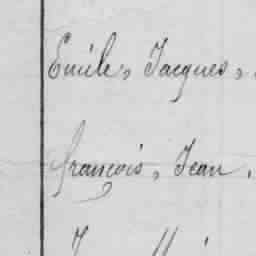 Emile, Jacques,
françois, Jean,